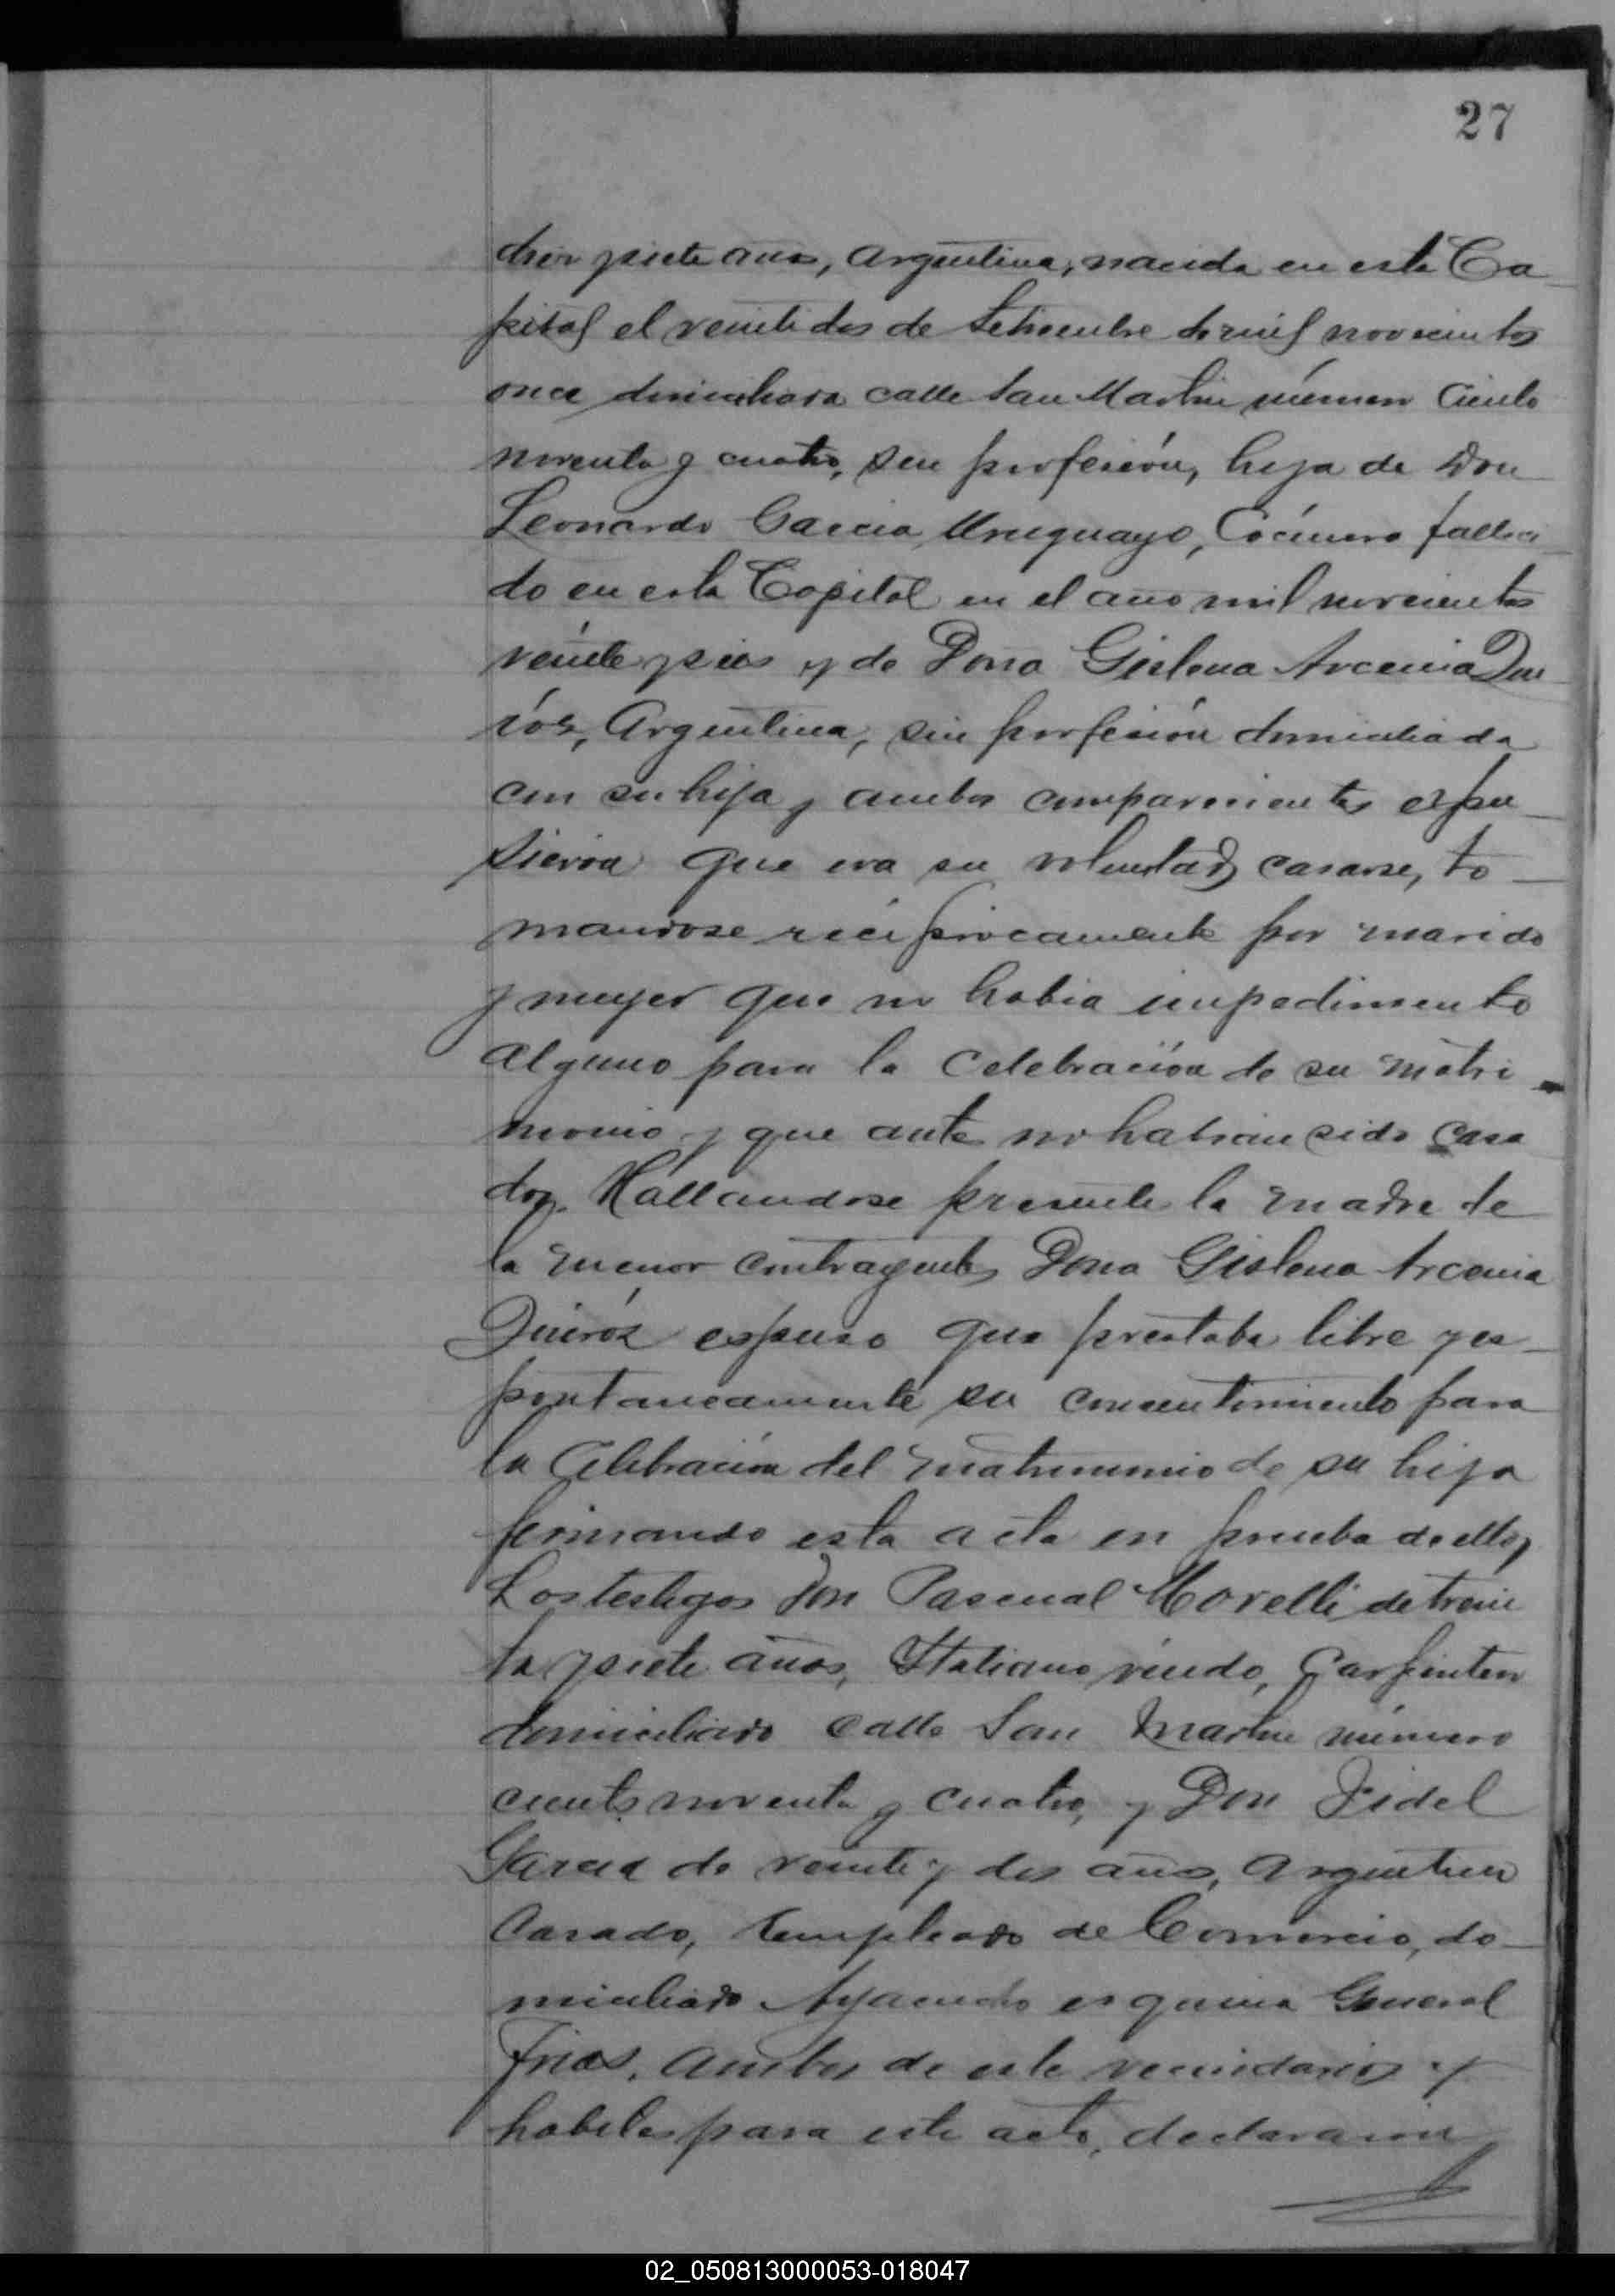 27
diez y siete años, Argentina, nacida en esta Ca-
pital el veintidos de Setiembre de mil novecientos
once domiciliada calle San Martin número Ciento
noventa y cuatro, sin profesión, hija de Don
Leonardo Garcia, Uruguayo, Cocinero falleci-
do en esta Capital en el año mil novecientos
veinte y seis y de Dona Gislena Arcenia Qui-
róz, Argentina, sin profesión domiciliada
con su hija y ambos comparecientes espu-
sieron que era su voluntad casarse, to-
mandose reciprocamente por marido
y mujer que no habia impedimento
alguno para la celebración de su matri-
monio y que antes no habian sido casa
dos. Hallandose presente la madre de
la menor contrayente Dona Gislena Arcenia
Quiróz espuso que prestaba libre y es-
pontaneamente su consentimiento para
la celebración del matrimonio de su hija
firmando esta acta en prueba de ello,
Los testigos Don Pascual Morelli de trein
ta y siete años, Italiano viudo, Carpintero
domiciliado calle San Martin número
ciento noventa y cuatro, y Don Fidel
Garcia de veinte y dos años, Argentino
Casado, Empleado de Comercio, do-
miciliado Ayacucho esquina General
Frias, ambos de este vecindario y
habiles para este acto, declararon
02_050813000053-018047